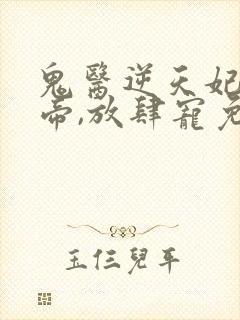 鬼醫逆天妃
帝,放肆寵
玉仨兒平